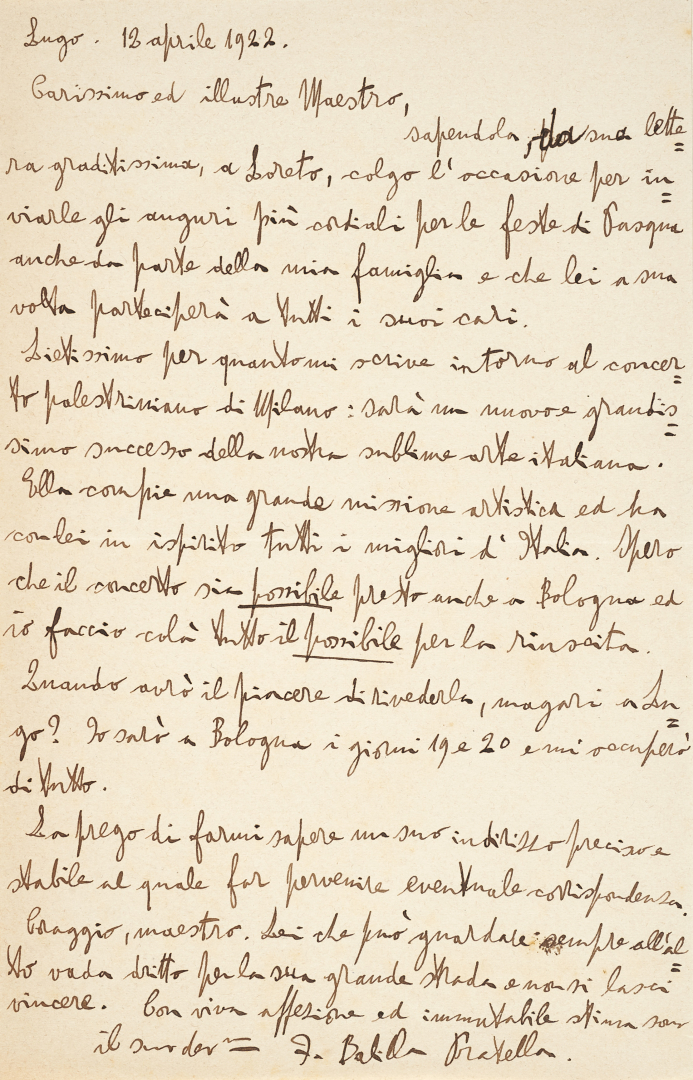 Lugo. 12 aprile 1922.
Carissimo ed illustre Maestro,
sapendola, da sua lette=
ra graditissima, a Loreto, colgo l'occasione per in=
viarle gli auguri più cordiali per le feste di Pasqua
anche da parte della mia famiglia e che lei a sua
volta parteciperà a tutti i suoi cari.
Lietissimo per quanto mi scrive intorno al concer=
to palestriniano di Milano: sarà un nuovo e grandis=
simo successo della nostra sublime arte italiana.
Ella compie una grande missione artistica ed ha
con lei in ispirito tutti i migliori d'Italia. Spero
che il concerto sia possibile presto anche a Bologna ed
io faccio colà tutto il possibile per la riuscita.
Quando avrò il piacere di rivederla, magari a Lu=
go? Io sarò a Bologna i giorni 19 e 20 e mi occuperò
di tutto.
La prego di farmi sapere un suo indirizzo preciso e
stabile al quale far pervenire eventuale corrispondenza.
Coraggio, maestro. Lei che può guardare sempre all'al=
to vada dritto per la sua grande strada e non si lasci
vincere. Con viva affezione ed immutabile stima sono
il suo F. Balilla Pratella.